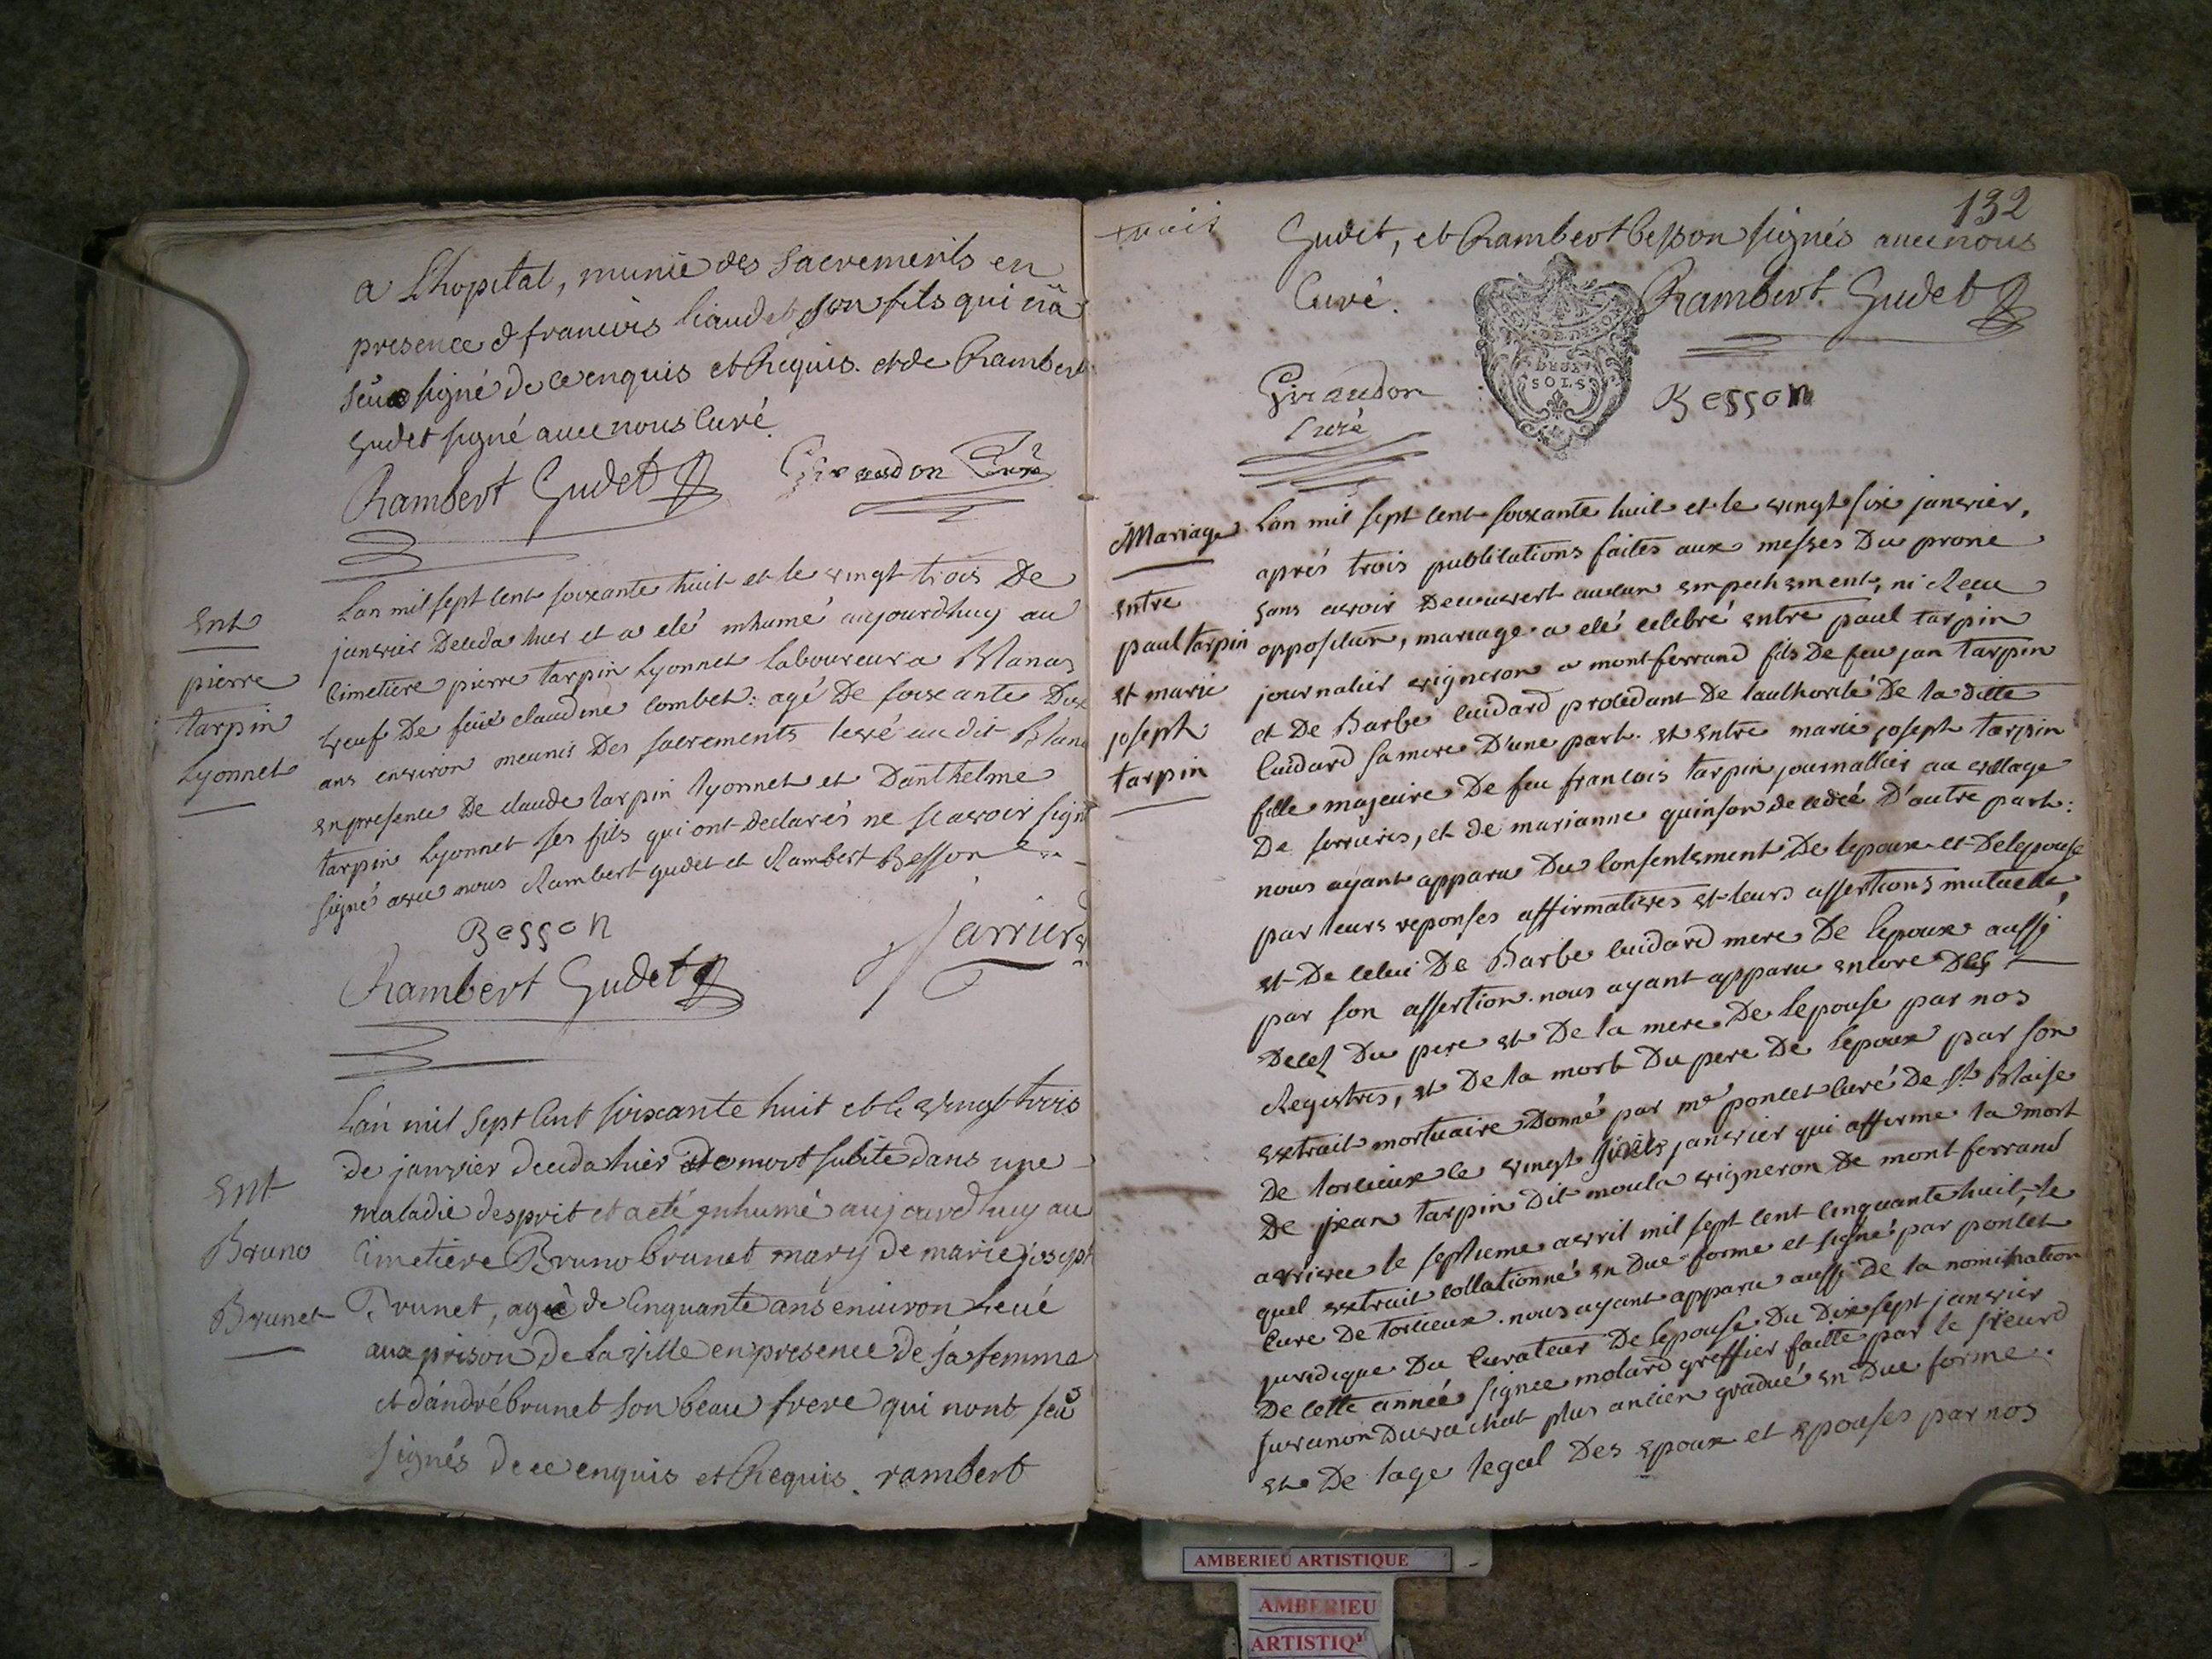 a Lhopital, munie des Sacrements en
presence d francois liaudet son fils qui na
sçu signé de ce enquis et Requis. et de Rambert
Gudet signé avec nous Curé.
Rambert Gudet Giraudon Curé
Ent
pierre
tarpin
Lyonnet
Lan mil sept cent soixante huit et le vingt trois De
janvier Deceda hier et a eté inhumé aujourdhuy au
Cimetiere pierre tarpin Lyonnet Laboureur a Blanas
veuf De feüe claudine Combet: agé De soixante Dix
ans environ meunis Des sacrements levé audit Blana
en presence De claude tarpin lyonnet et Danthelme
tarpin Lyonnet ses fils qui ont declarés ne scavoir sign
signé avec nous Rambert gudet et Rambert Besson
Besson
Jarrier
Rambert Gudet
Ent
Bruno
Brunet
Lan mil sept Cent soixante huit et le vingt trois
de janvier deceda hier de mort subite dans une
maladie desprit et a eté inhumé aujourdhuy au
Cimetiere Bruno brunet mary de marie joseph
Brunet, agé de Cinquante ans enuiron Leué
aux prison de la ville en presence de sa femme
et dandré brunet son beau frere qui nont scu
signés de ce enquis et Requis. rambert
132
Gudet, et Rambert besson signés auec nous
Curé.
Rambert Gudet
DEUX
SOLS
Giraudon
Curé
Besson
Mariage
entre
paul tarpin
et marie
joseph
tarpin
Lan mil sept cent soixante huit et le vingt six janvier,
aprés trois publications faites aux messes Du prone
sans avoir Decouvert aucun empechement, ni Recu
opposition, mariage a eté celebré entre paul tarpin
journalier vigneron a montferrand fils De feu jan tarpin
et De Barbe cuidard procedant De lauthorité De la ditte
Cuidard sa mere D'une part. et entre marie joseph tarpin
fille majeure De feu francois tarpin journallier au village
De serrieres, et de marianne quinson decedeé D'autre part:
nous ayant apparu Du Consentement De lepoux et De lepouse
par leurs reponses affirmatives et leurs assertions mutuelle,
et De celui De Barbe cuidard mere De lepoux aussi
par son assertion. nous ayant apparu encore Des
Decez Du pere et De la mere De lepouse par nos
Registres, et De la mort Du pere De lepoux par son
extrait mortuaire Donné par mr poncet Curé De st Blaise
De torcieux le vingt janvier qui afferme la mort
De jean tarpin Dit moula vigneron De mont ferrand
arrivee le septieme avril mil sept cent cinquante huit, le
quel extrait collationné en Due forme et signé par poncet
Cure De torcieux. nous ayant apparu aussi De la nomination
juridique Du Curateur De lepouse Du Dix sept janvier
De cette année signee molard greffier faitte par le sieurd
juvanon Duvachat plus ancien gradué en Due forme.
et De lage legal Des epoux et epouses par nos
AMBERIEU ARTISTIQUE
AMBERIEU
ARTISTIQ